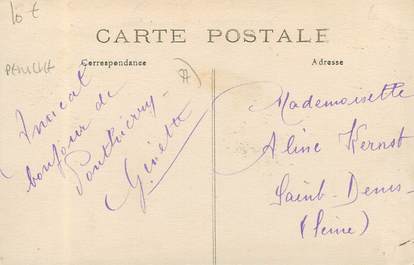 10 €
CARTE POSTALE
Correspondance
Adresse
Amical
bonjour de
Ponthierry
Ginette
Mademoiselle
Aline Kernst
Saint-Denis
(Seine)